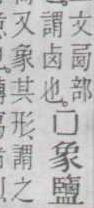 文卥部
謂卤也。
囗象鹽
又象其形、謂之